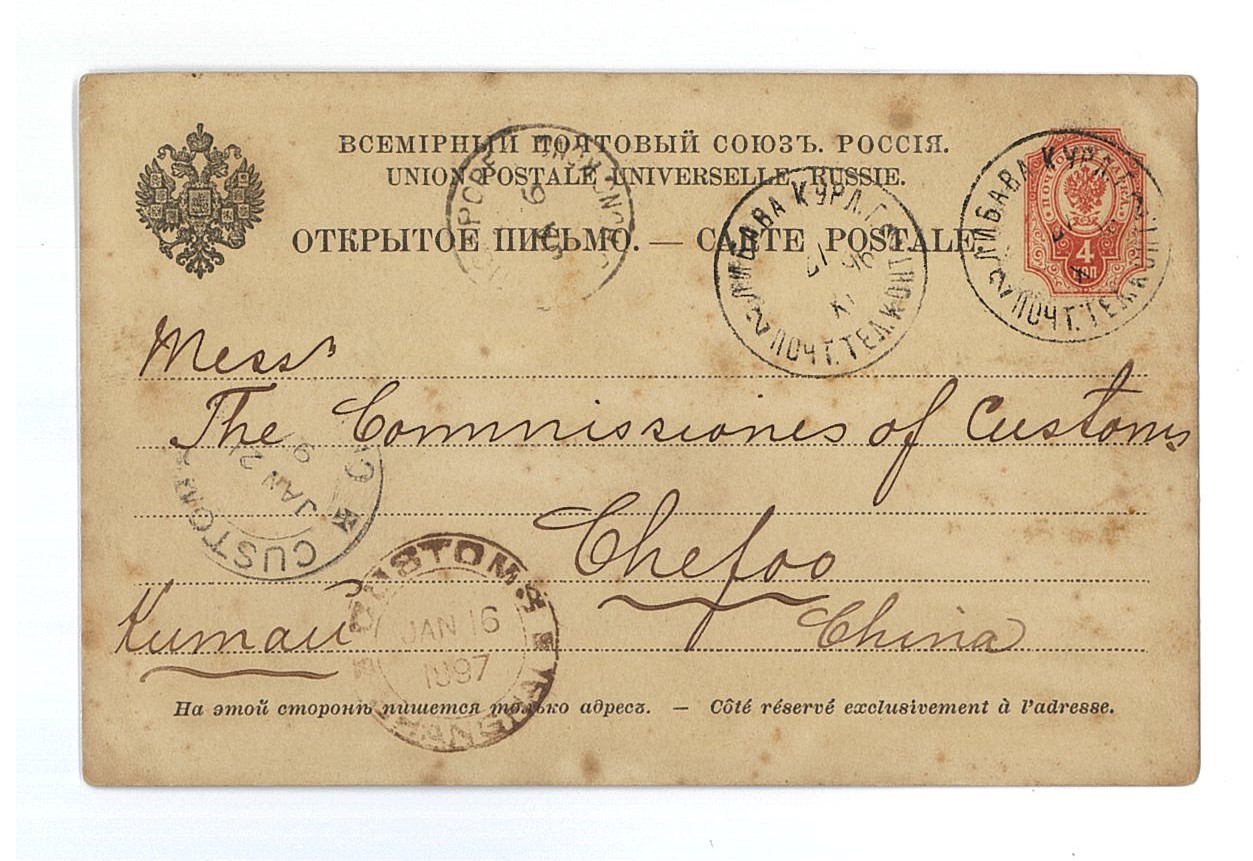 ВСЕМІРНЫЙ ПОЧТОВЫЙ СОЮЗЪ. РОССІЯ.
UNION POSTALE UNIVERSELLE. RUSSIE.
ОТКРЫТОЕ ПИСЬМО. — CARTE POSTALE.
ЛИБАВА КУРЛ.Г.
21 XI 96
2 ПОЧТ.ТЕЛ.КОНТ.
ЛИБАВА КУРЛ.Г.
2 ПОЧТ.ТЕЛ.КОНТ.
4
КОП
Messrs
The Commissiones of Customs
Chefoo
China
CUSTOMS
JAN 21
CUSTOMS
JAN 16
1897
На этой сторонѣ пишется только адресъ. — Côté réservé exclusivement à l'adresse.